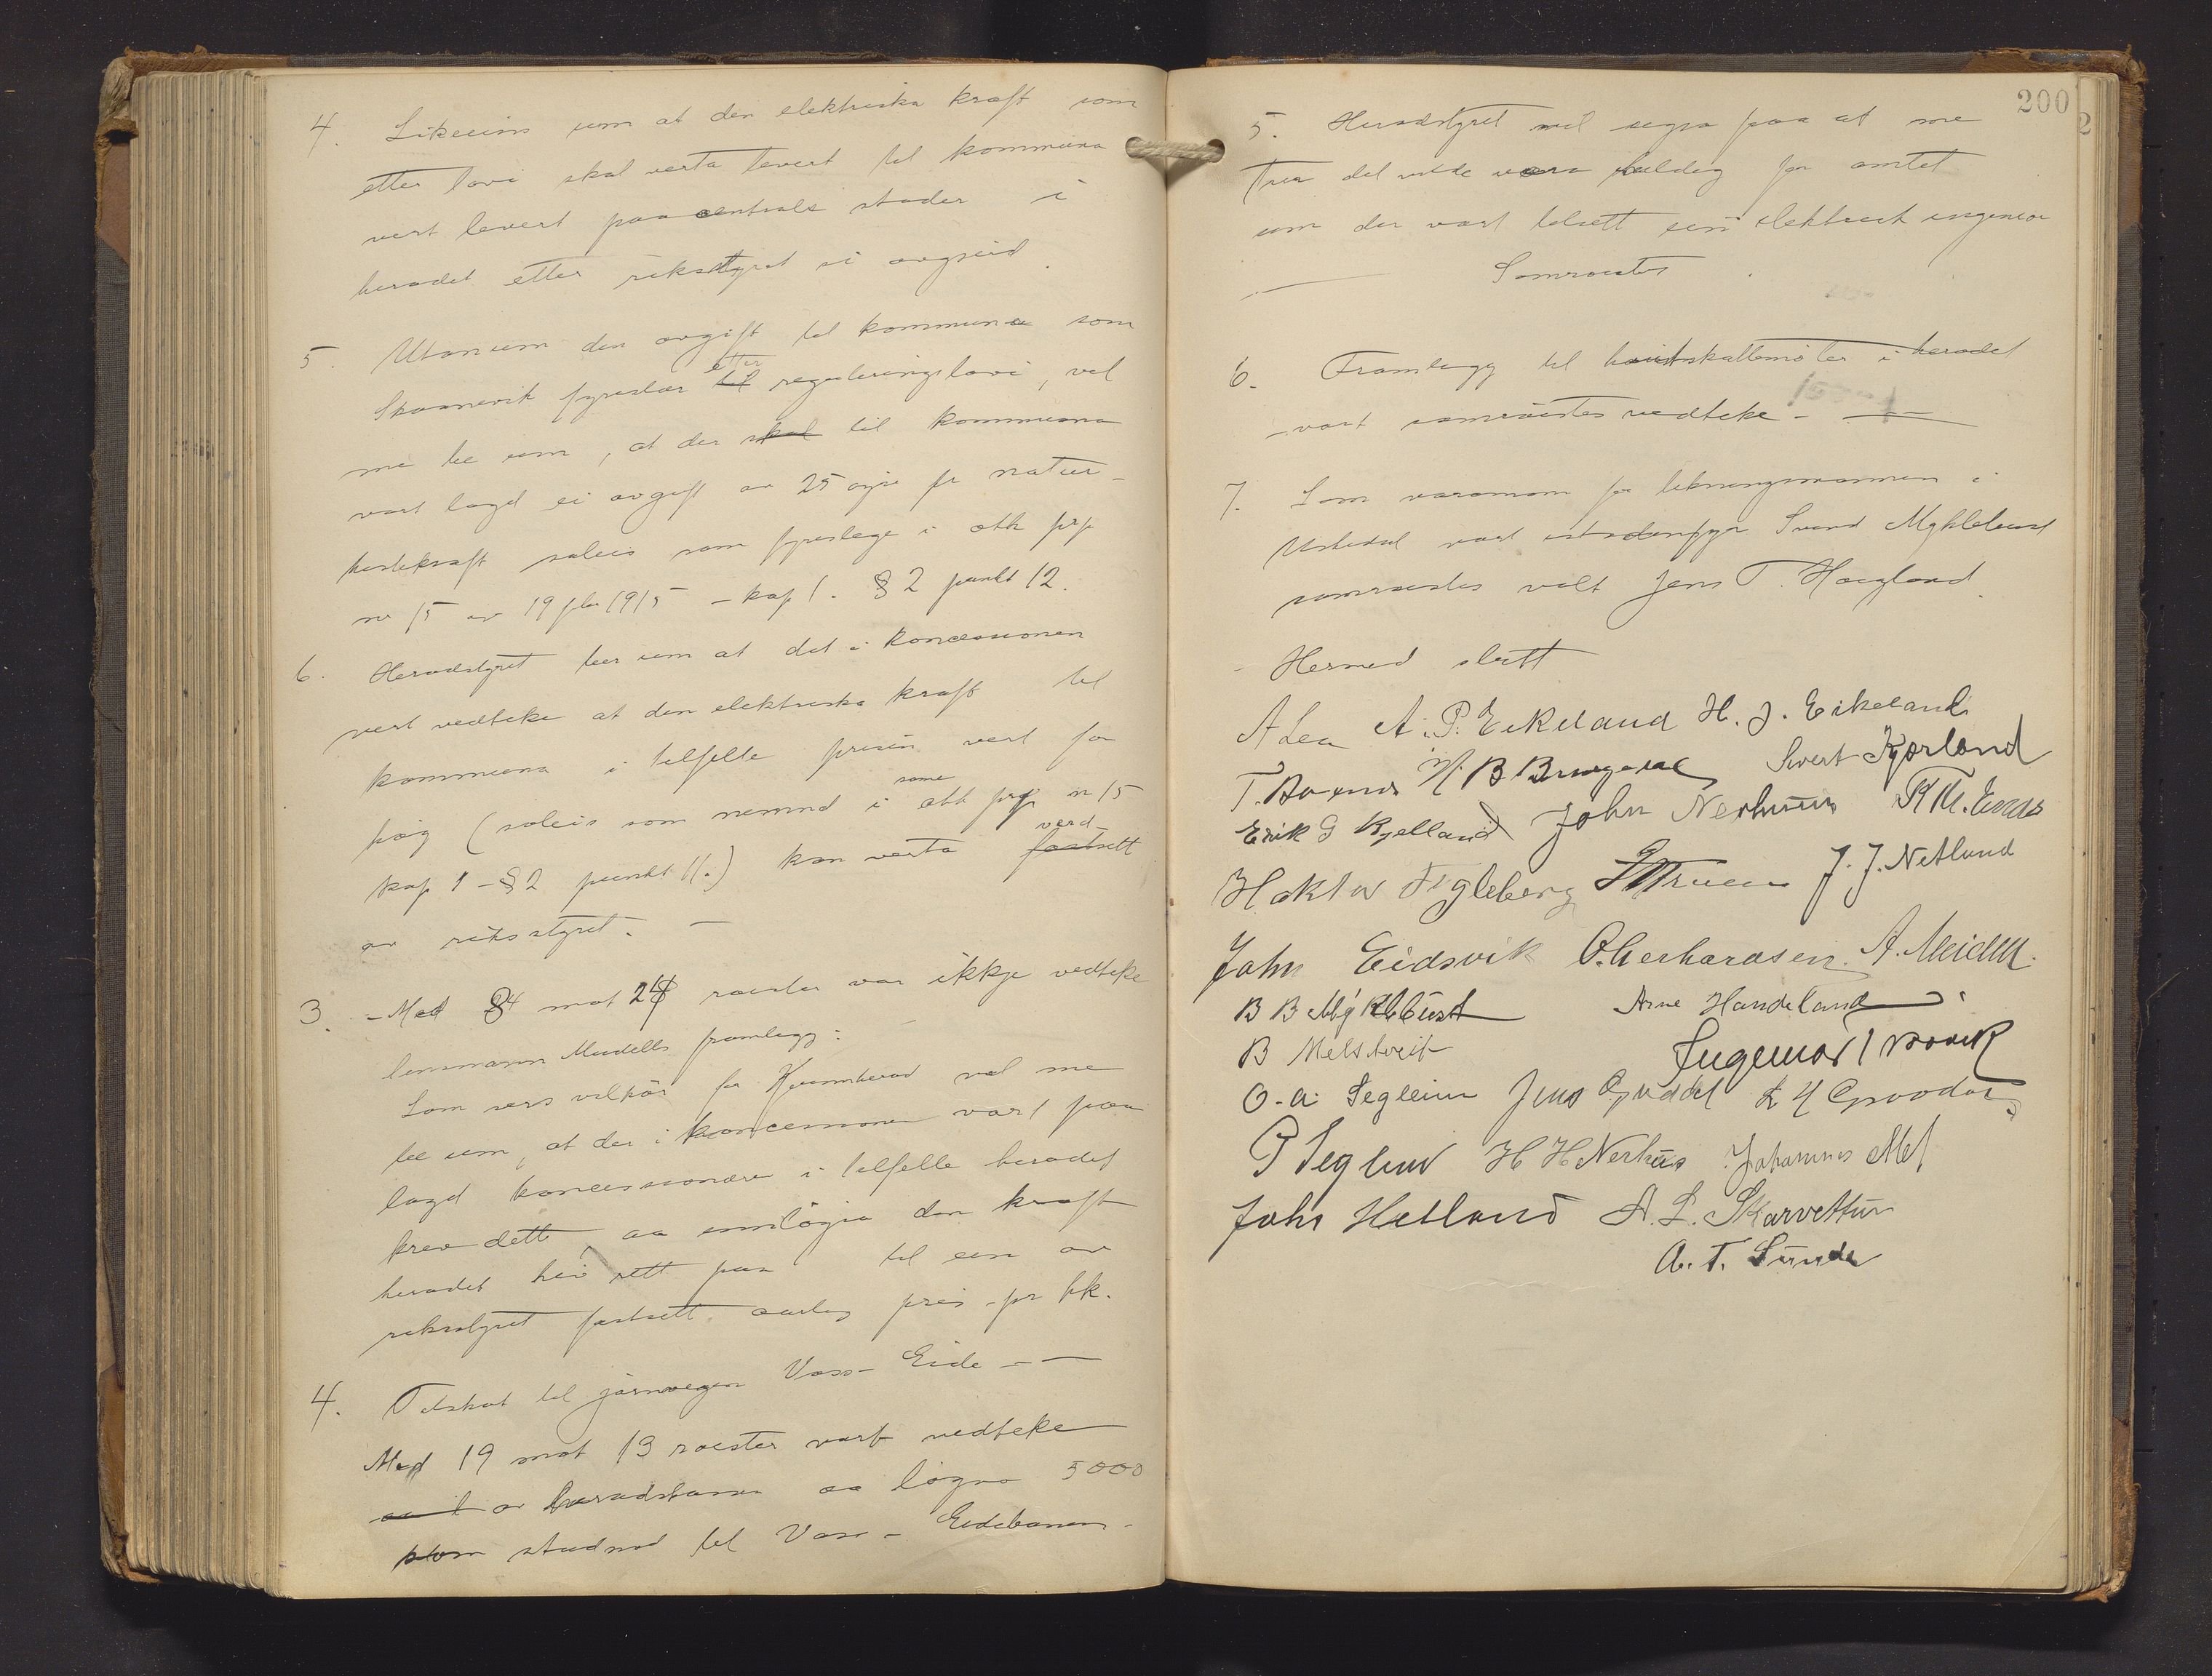 4. Likeeins um at den elektriska kraft som
etter lovi skal verta levert til kommuna
vert levert paa centrale stader i
heradet etter riksstyret si avgjerd.
5. Utanum den avgift til kommuna som
etter
Skaanevik fyreslær til reguleringslovi, vil
me be um, at der skal til kommuna
vart lagd ei avgift av 25 øyre pr natur-
hestekraft soleis som fyreslege i oth prp
nr 15 av 19 fbr 1915 - kap 1. § 2 punkt 12.
6. Heradstyret ber um at det i koncessionen
vert vedteke at den elektriska kraft til
kommuna i tilfelle prisen vert for
høg (soleis som nemnd i same oth prp nr 15
verd
kap 1 - § 2 punkt 11.) kan verta fastsett
av riksstyret. -
3. - Med 84 mot 24 røester var ikkje vedteke
lensmann Mundells framlegg:
Som sers vilkår for Kvinnherad vil me
be um, at der i koncessionen vart paa
lagd koncessionæren i tilfelle heradet
krev dette aa innløysa den kraft
heradet hev rett paa til ein av
riksstyret fastsett aarleg pris pr hk.
4. Tilskot til jarnvegen Voss - Eide - -
Med 19 mot 13 røester vart vedteke
av heradskassa aa løyva 5000
som studnad til Voss - Eidebanen -
200
2
5. Heradstyret vil segja paa at me
trur det vilde vera heldig for amtet
um der vart tilsett ein elektrisk ingeniør
Samrøestes
6. Framlegg til hundskattemøter i heradet
- vart samrøistes vedteke - -
7. Som varamann for likningsmannen i
Uskedal vart istadenfyr Svend Myklebust
samrøestes valt Jens T. Haugland.
- Hermed slutt
A Lea A. P. Eikeland H. J. Eikeland
T. Bavand H. B Bringedal Sivert Kjærland
Erik G Kjelland John Nerhuus K M. Enæs
Hakto Fugleberg J. J. Netland
John Eidsvik O. Gerhardsen. A. Meidell.
B B Myklebust Arne Handeland
B Melstveit Ingemar
O. A. Segleim Jens Guddal
P Seglem H H Nerhus Johannes Mel
John Hetland A. L. Skarvettun
A. T. Sunde